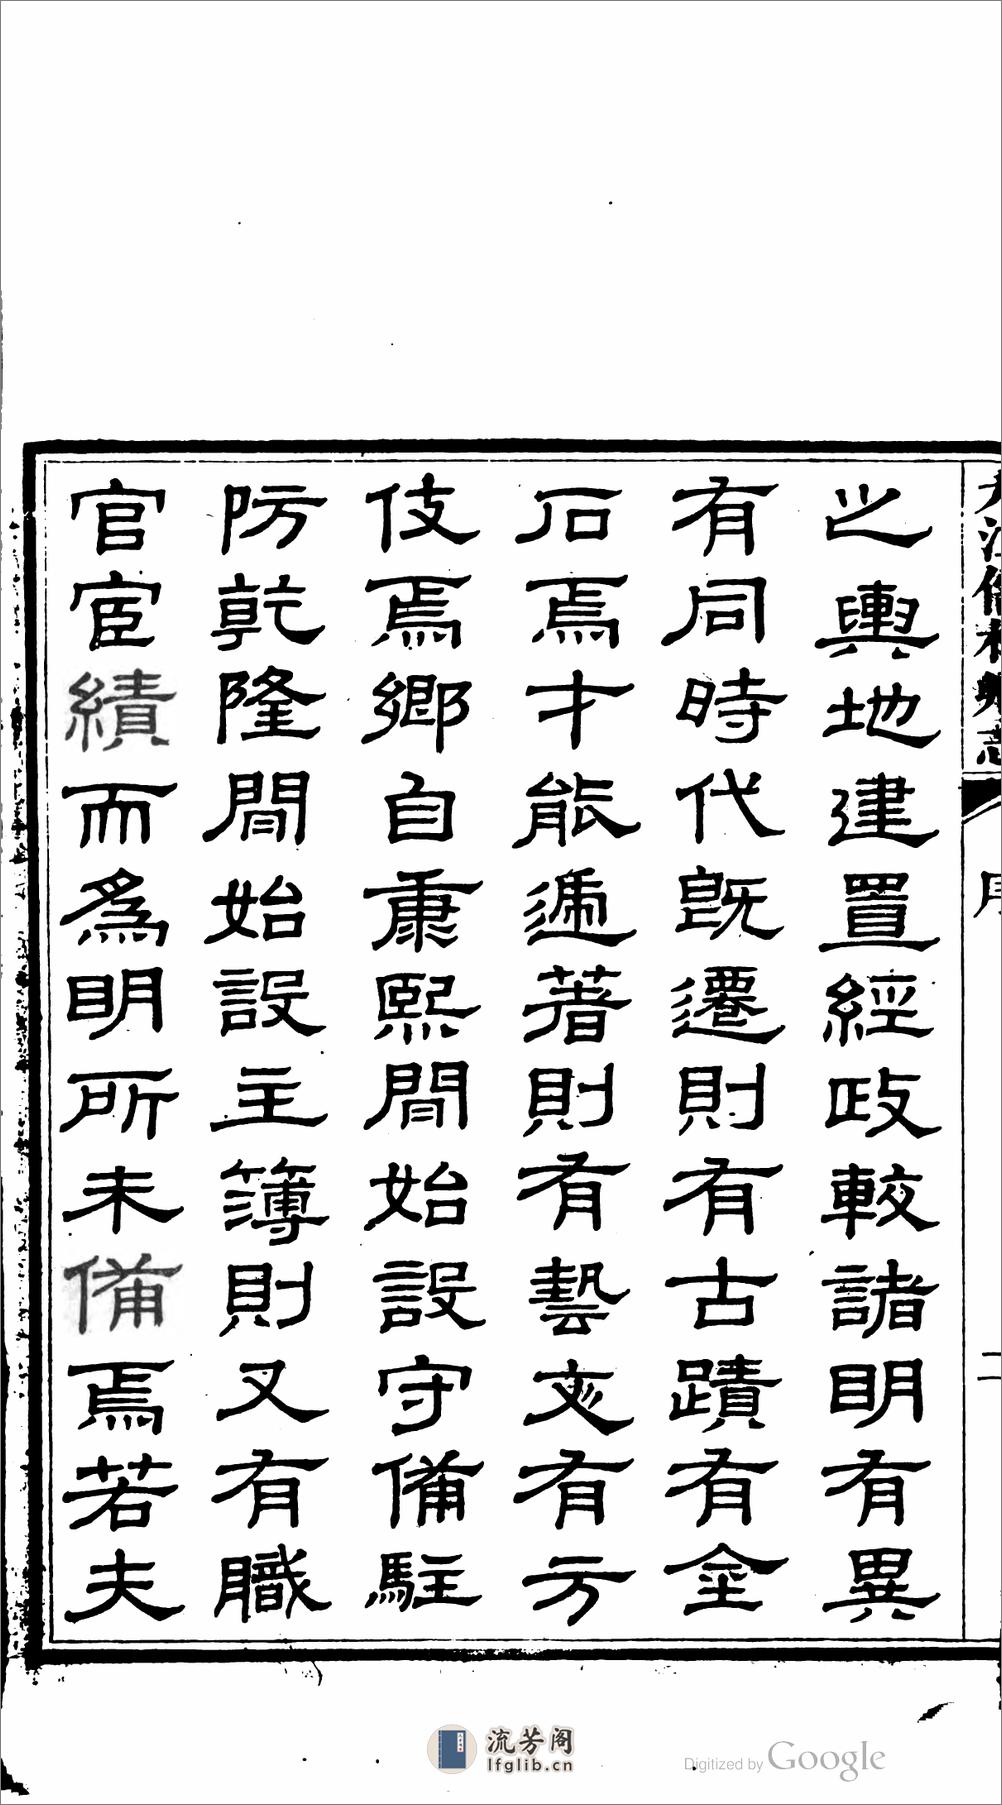 之輿地建置經政較諸明有異
有同時代旣遷則有古蹟有金
石焉才能遞著則有藝文有方
伎焉鄉自康熙間始設守備駐
防乾隆間始設主簿則又有職
官宦績而爲明所未備焉若夫
序
二
流芳阁
lfglib.cn
Digitized by Google